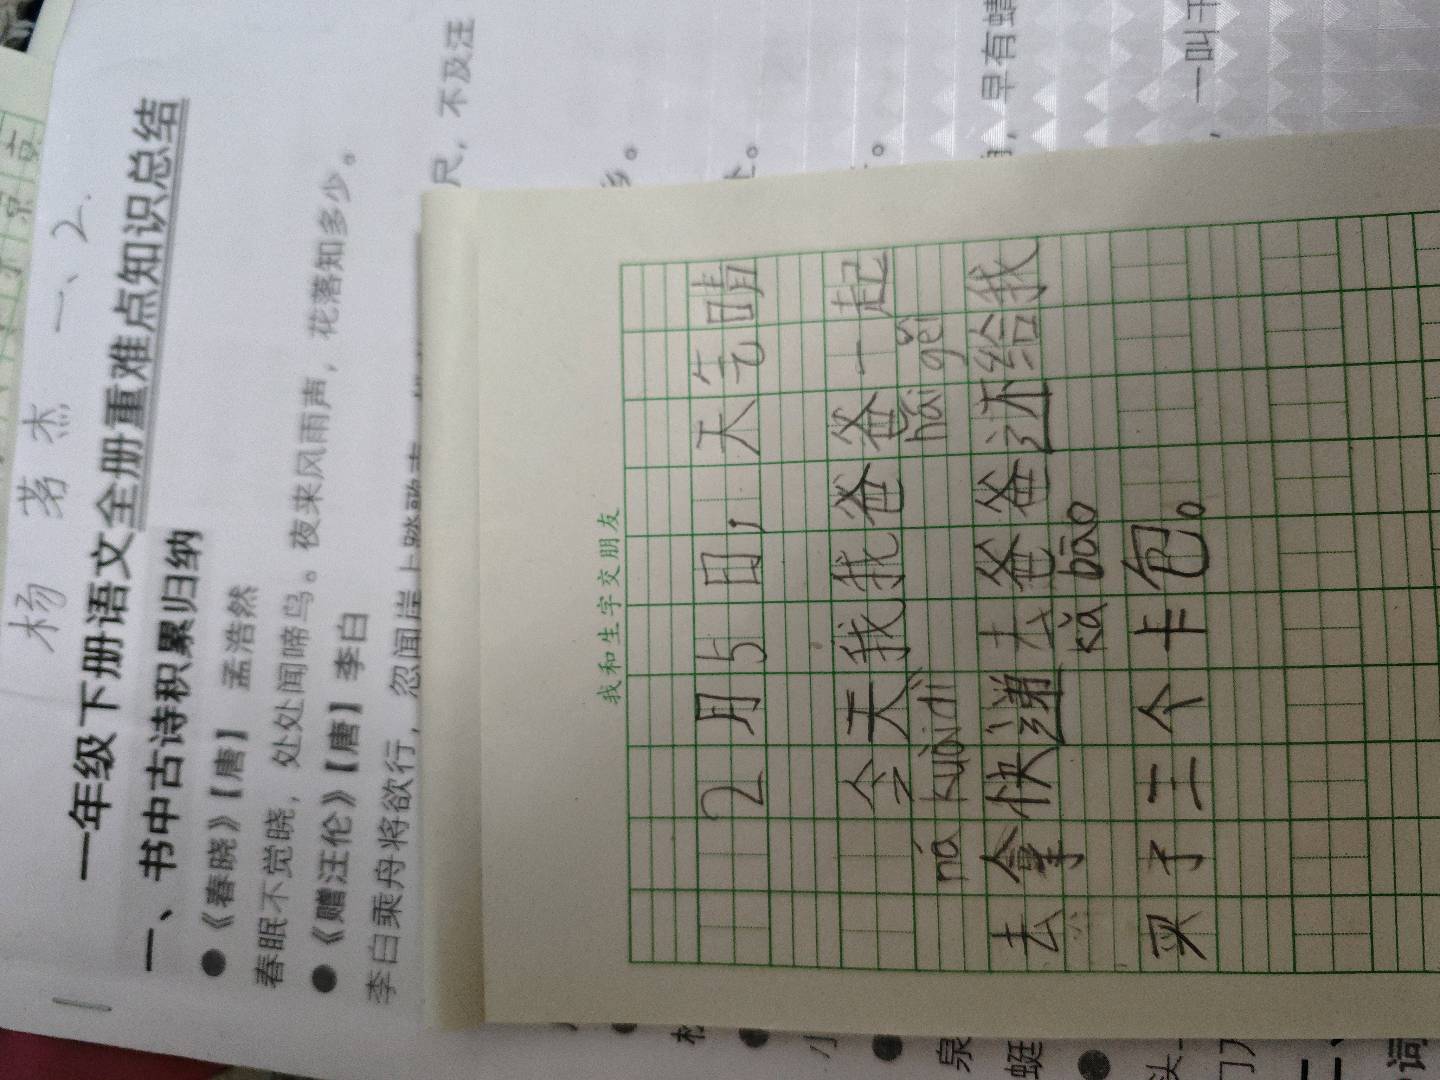 杨茗杰 一、2.
一年级下册语文全册重难点知识总结
一、书中古诗积累归纳
●《春晓》【唐】 孟浩然
春眠不觉晓，处处闻啼鸟。夜来风雨声，花落知多少。
●《赠汪伦》【唐】李白
李白乘舟将欲行，忽闻岸上踏歌声
尺，不及汪
我和生字交朋友
2月5日，天气晴
今天我我爸爸一起
ná kuàidì hái gěi
去拿快递去爸爸还给我
kǎ bāo
买了三个卡包。
早有蜻
一叫千
泉
蜓
头
门
二、
词